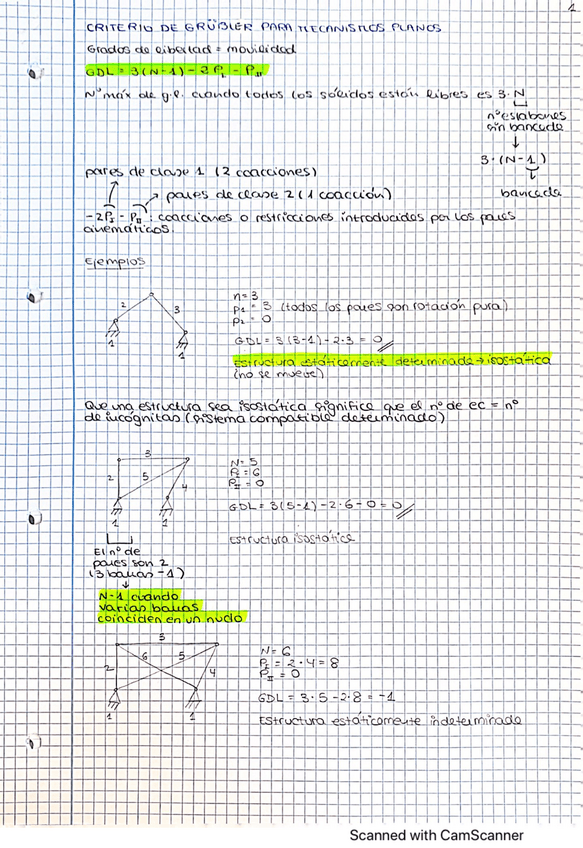 1
CRITERIO DE GRÜBLER PARA MECANISMOS PLANOS
Grados de libertad = movilidad
GDL = 3(N-1) - 2P_I - P_II
Nº máx de g.l. cuando todos los sólidos están libres es 3·N
nº eslabones
sin bancada
3·(N-1)
bancada
pares de clase 1 (2 coacciones)
pares de clase 2 (1 coacción)
-2P_I - P_II: coacciones o restricciones introducidas por los pares
cinemáticos.
Ejemplos
2
3
1
1
n = 3
P1 = 3 (todos los pares son rotación pura)
P2 = 0
GDL = 3(3-1) - 2·3 = 0
Estructura estáticamente determinada → isostática
(no se mueve)
Que una estructura sea isostática significa que el nº de ec = nº
de incógnitas (sistema compatible determinado)
3
2
5
4
1
1
N = 5
P_I = 6
P_II = 0
GDL = 3(5-1) - 2·6 - 0 = 0
Estructura isostática
El nº de
pares son 2
(3 barras - 1)
N-1 cuando
varias barras
coinciden en un nudo
3
6
5
2
4
1
1
N = 6
P_I = 2·4 = 8
P_II = 0
GDL = 3·5 - 2·8 = -1
Estructura estáticamente indeterminada
Scanned with CamScanner